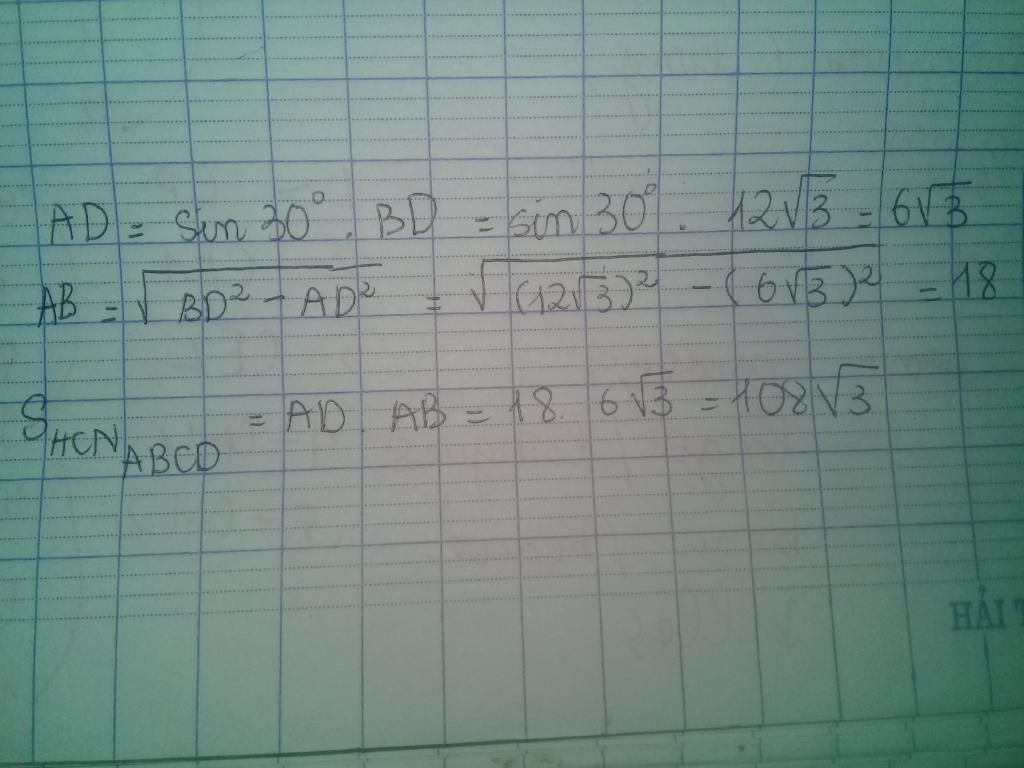 AD = sin 30° . BD = sin 30° . 12√3 = 6√3
AB = √(BD² - AD²) = √((12√3)² - (6√3)²) = 18
S HCN ABCD = AD . AB = 18 . 6√3 = 108√3
HẢI